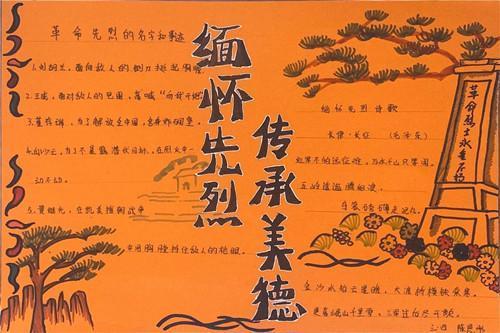 缅怀先烈
传承美德
革命先烈的名字和事迹
1.刘胡兰，面向敌人的铡刀挺起胸膛
2.王成，面对敌人的包围，高喊“向我开炮
3.董存瑞，为了解放全中国，舍身炸碉堡。
4.邱少云，为了不暴露潜伏目标，在烈火中一
动不动。
5.黄继光，在抗美援朝战争
中用胸膛挡住敌人的枪眼。
缅怀先烈诗歌
七律·长征 （毛泽东）
红军不怕远征难，万水千山只等闲。
五岭逶迤腾细浪，
乌蒙磅礴走泥丸。
金沙水拍云崖暖，大渡桥横铁索寒。
更喜岷山千里雪，三军过后尽开颜。
革命烈士永垂不朽